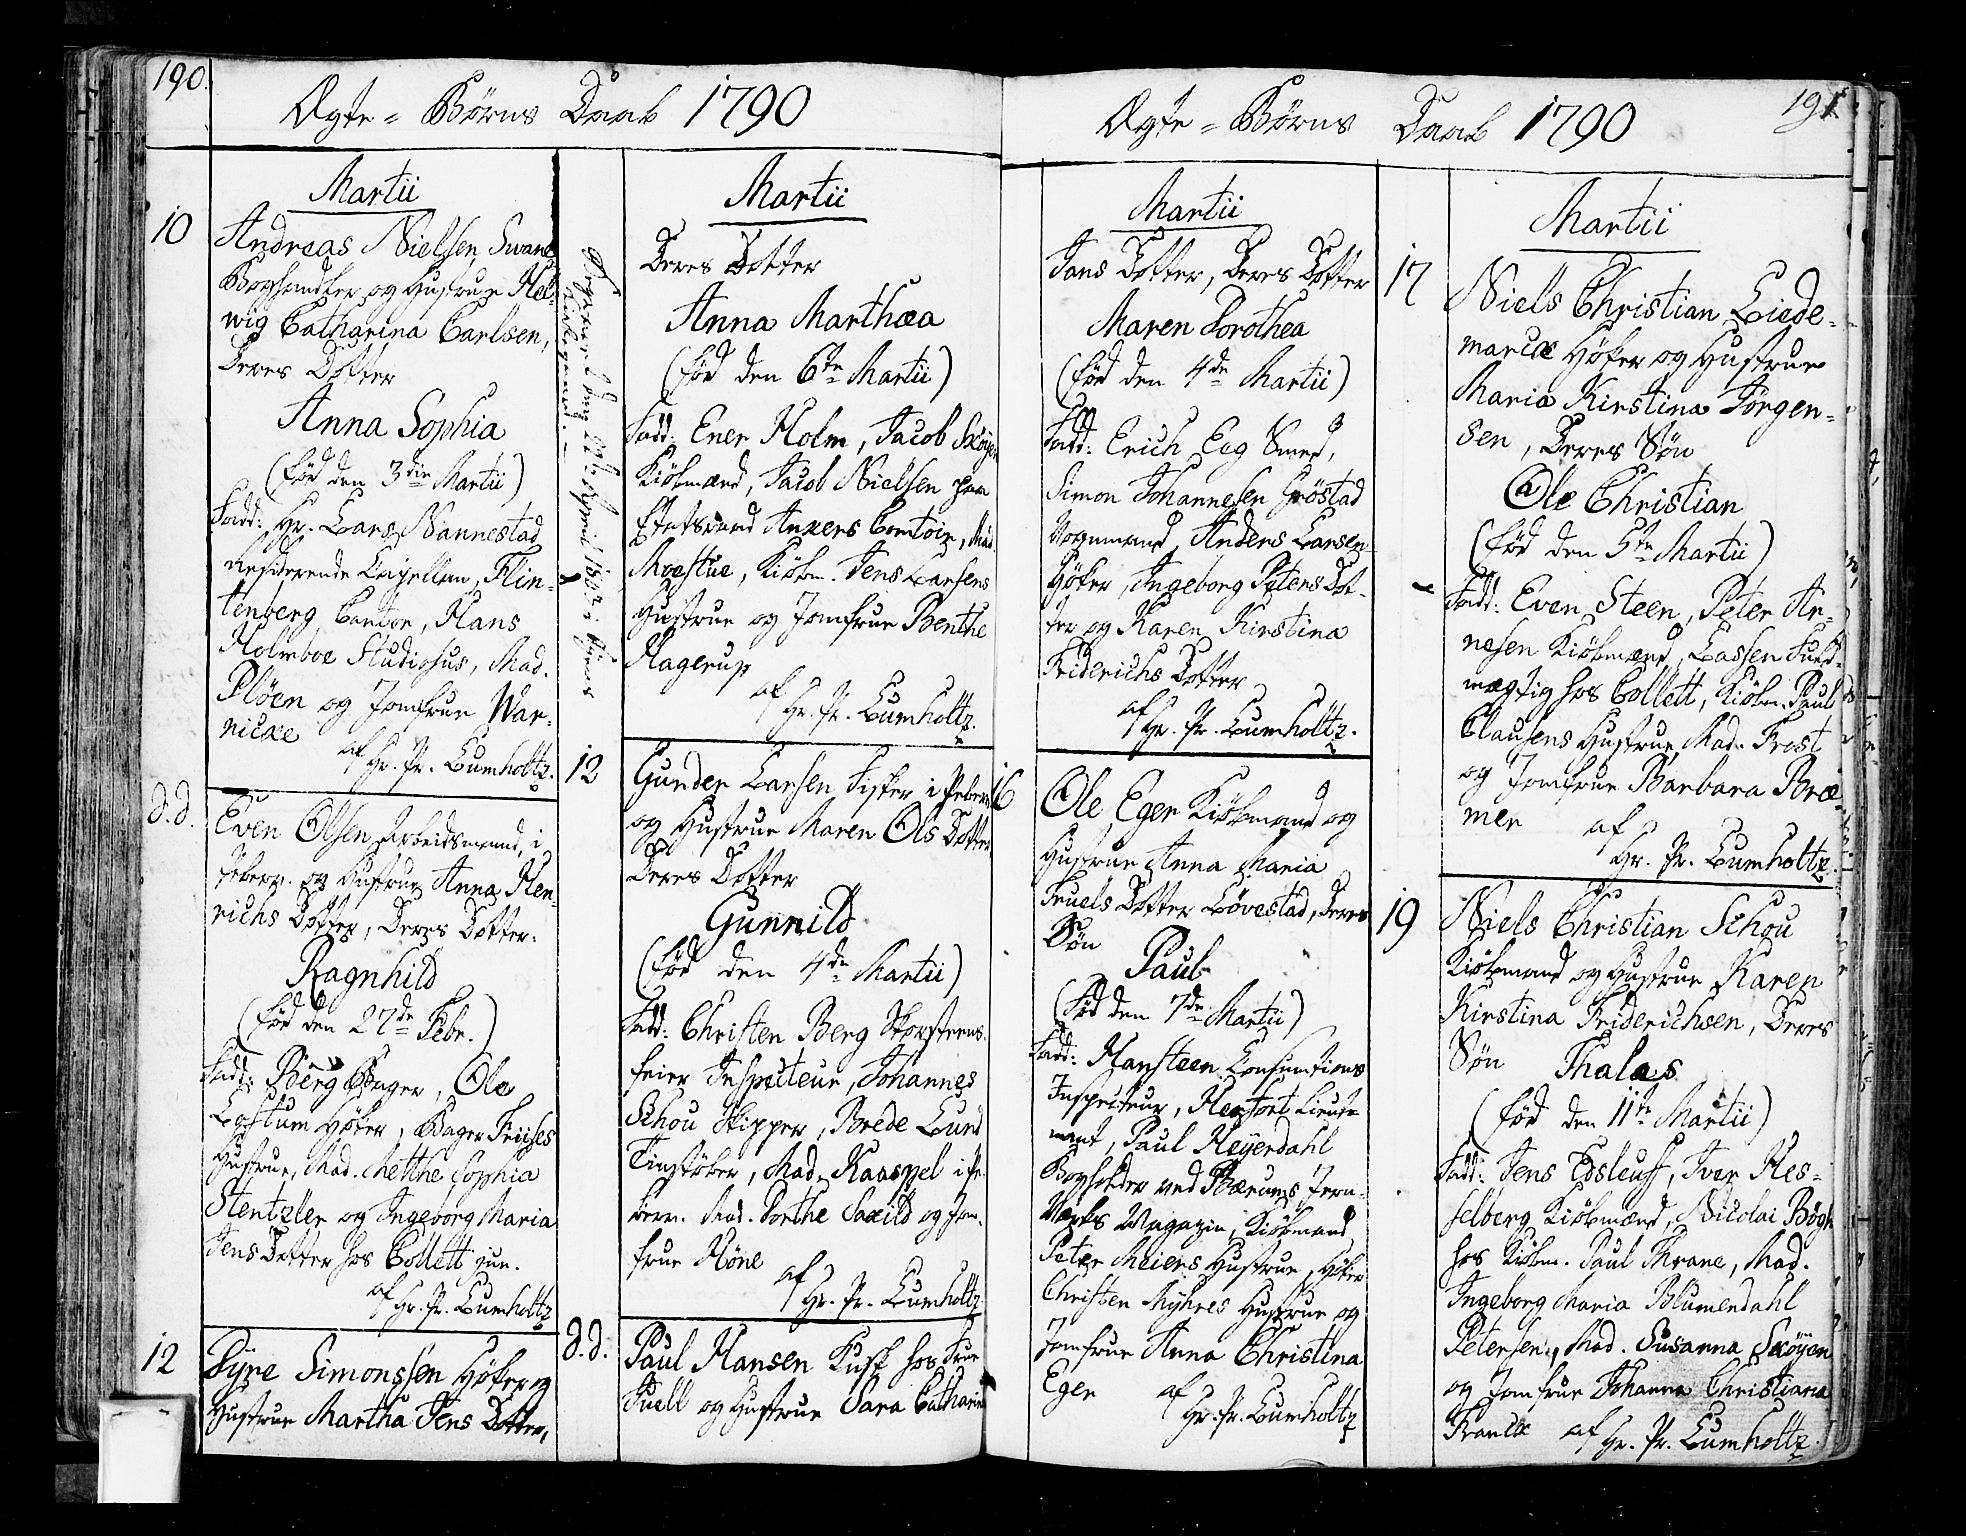 190.
Ægte = Børns Daab 1790
Martii
10
Andreas Nielsen Swane
Boghandler og Hustrue Hel-
wig Catharina Carlsen,
Deres Dotter
Anna Sophia
(Född den 3die Martii)
Fadd: Hr. Lars Nannestad
Residerende Capellan, Flin-
tenberg Cantor, Hans
Holmboe Studiosus, Mad.
Plöen og Jomfrue War-
nicke
af Hr. Pr. Lumholtz.
d.d.
Even Olsen Arbeidsmand, i
Peberv. og Hustrue Anna Hen-
richs Dotter, Deres Dotter.
Ragnhild
(Född den 27de Febr.)
Fadd: Berg Bager, Ole
Høker, Bager Friises
Hustrue, Mad. Methe Sophia
Stentzler og Ingeborg Maria
Jens Dotter hos Collett jun.
af Hr. Pr. Lumholtz
12
Pyre Simonssen Høker og
Hustrue Martha Jens Dotter,
April 1802 i
Kirkegaard.
Martii
Deres Dotter
Anna Marthæa
(Född den 6te Martii)
Fadd: Ener Holm, Jacob Sköyen
Kiöbmænd, Jacob Nielsen paa
Etatsraad Ankers Contoir, Mad.
Moestue, Kiöbm. Jens Larsens
Hustrue og Jomfrue Benthe
Hagerup
af Hr. Pr. Lumholtz.
12
Gunder Larsen Fisker i Peberv.
og Hustrue Maren Ols Dotter,
Deres Dotter
Gunnild
(Född den 4de Martii)
Fadd: Christen Berg Skorsteens-
feier Inspecteur, Johannes
Schou Skipper, Brede Lund
Tinstøker, Mad. Kaaspel i Pe-
berv. Mad. Dorthe Saxild og Jom-
frue Höne
af Hr. Pr. Lumholtz
d.d.
Paul Hansen Kusk hos Frue
Juell og Hustrue Sara Catharina
191
Ægte = Børns Daab 1790
Martii
Jans Dotter, Deres Dotter
Maren Dorothea
(Född den 4de Martii)
Fadd: Erich Eeg Smed,
Simon Johannesen Gröstad
Vognmand, Anders Larsen
Høker, Ingeborg Peters Dot-
ter og Karen Kirstina
Friderichs Dotter
af Hr. Pr. Lumholtz.
16
Ole Eger Kiöbmand og
Hustrue Anna Maria
Truels Dotter Lövestad, Deres
Sön
Paul
(Född den 7de Martii)
Fadd: Hansteen Consumtions
Inspecteur, Herfort Lieute-
nant, Paul Heyerdahl
Bogholder ved Bærums Jern-
Verks Magazin, Kiöbmand
Peter Meiers Hustrue, Høker
Christen Myhres Hustrue og
Jomfrue Anna Christina
Eger
af Hr. Pr. Lumholtz
Martii
17
Niels Christian Liede-
marck Høker og Hustrue
Maria Kirstina Jörgen-
sen, Deres Sön
Ole Christian
(Född den 5te Martii)
Fadd: Even Steen, Peter Ar-
nesen Kiöbmænd, Lassen Fuld-
mægtig hos Collett, Kiöbm. Paul
Clausens Hustrue, Mad. Frost
og Jomfrue Barbara Bræ-
mer
af Hr. Pr. Lumholtz
19
Niels Christian Schou
Kiöbmand og Hustrue Karen
Kirstina Friderichsen, Deres
Sön
Thales
(Född den 11te Martii)
Fadd: Jens Edsleuff, Iver Hes-
selberg Kiöbmænd, Nicolai Bögh
hos Kiöbm. Paul Thrane, Mad.
Ingeborg Maria Blumendahl
Petersen, Mad. Susanna Sköyen
og Jomfrue Johanna Christiana
Franck
af Hr. Pr. Lumholtz.